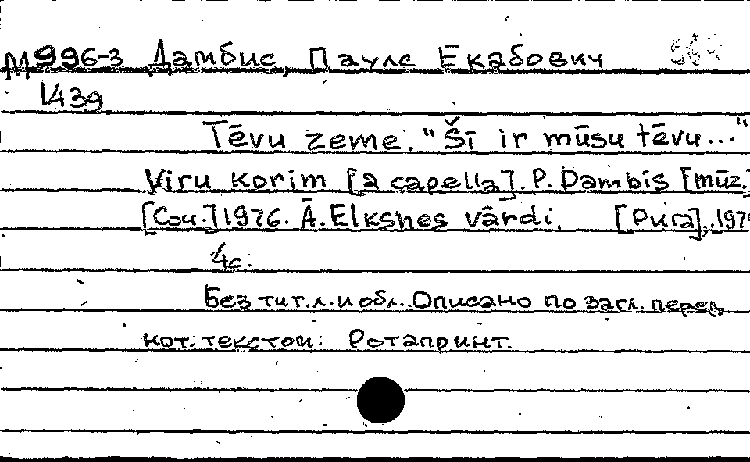 М996-3 Дамбис, Паулс Екабович
1439
Tēvu zeme. "Šī ir mūsu tēvu..."
Vīru korim [a capella]. P. Dambis [mūz.]
[Соч.] 1976. Ā. Elksnes vārdi.
4с.
Без тит. л. и обл. Описано по загл. перед
нот. текстом. Ротапринт.